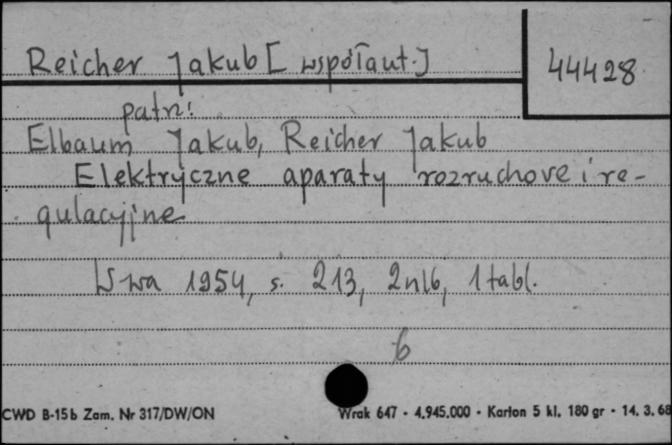 Reicher Jakub [współaut.]
44428
patrz:
Elbaum Jakub, Reicher Jakub
Elektryczne aparaty rozruchowe i re-
gulacyjne
W-wa 1954, s. 213, 2nlb, 1 tabl.
6
CWD B-15b Zam. Nr 317/DW/ON
Wrak 647 - 4.945.000 - Karton 5 kl. 180 gr - 14. 3. 68